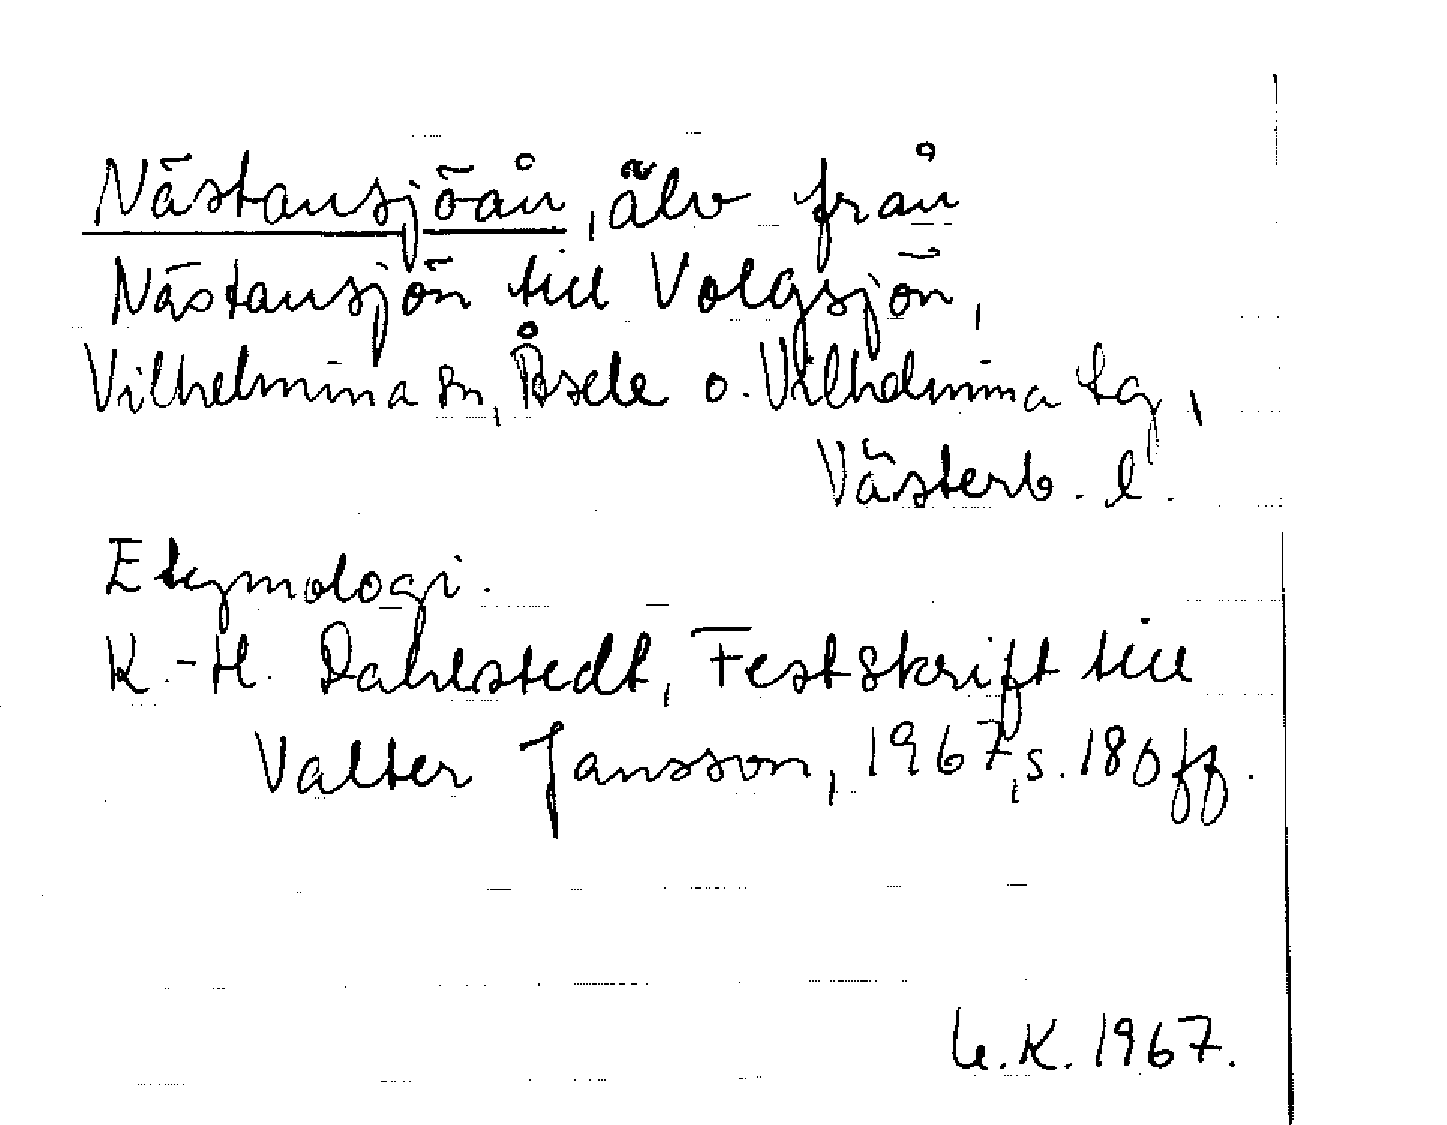 Nästansjöån, älv från
Nästansjön till Volgsjön,
Vilhelmina sn, Åsele o. Vilhelmina tg,
Västerb. l.
Etymologi.
K.-H. Dahlstedt, Festskrift till
Valter Jansson, 1967, s. 180 ff.
U.K. 1967.